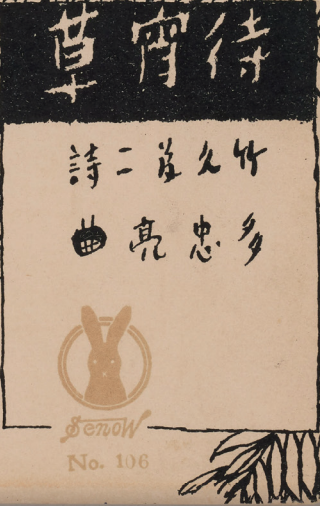 待宵草
竹久夢二詩
多忠亮曲
SenoW
No. 106